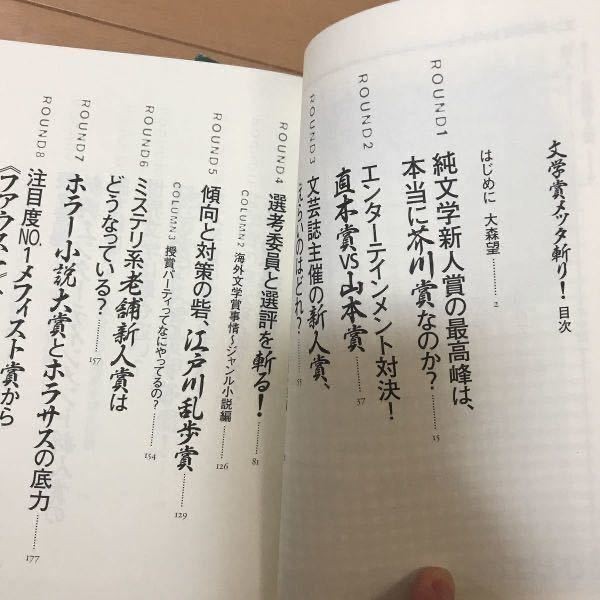 文学賞メッタ斬り！ 目次
はじめに 大森望…………2
ROUND1
純文学新人賞の最高峰は、
本当に芥川賞なのか？…………15
ROUND2
エンターテインメント対決！
直木賞VS山本賞…………37
ROUND3
文芸誌主催の新人賞、
えらいのはどれ？…………55
ROUND4
選考委員と選評を斬る！…………81
COLUMN2 海外文学賞事情〜ジャンル小説編…………126
ROUND5
傾向と対策の砦、江戸川乱歩賞…………129
COLUMN3 授賞パーティってなにやってるの？…………154
ROUND6
ミステリ系老舗新人賞は
どうなっている？…………157
ROUND7
ホラー小説大賞とホラサスの底力…………177
ROUND8
注目度NO.1メフィスト賞から